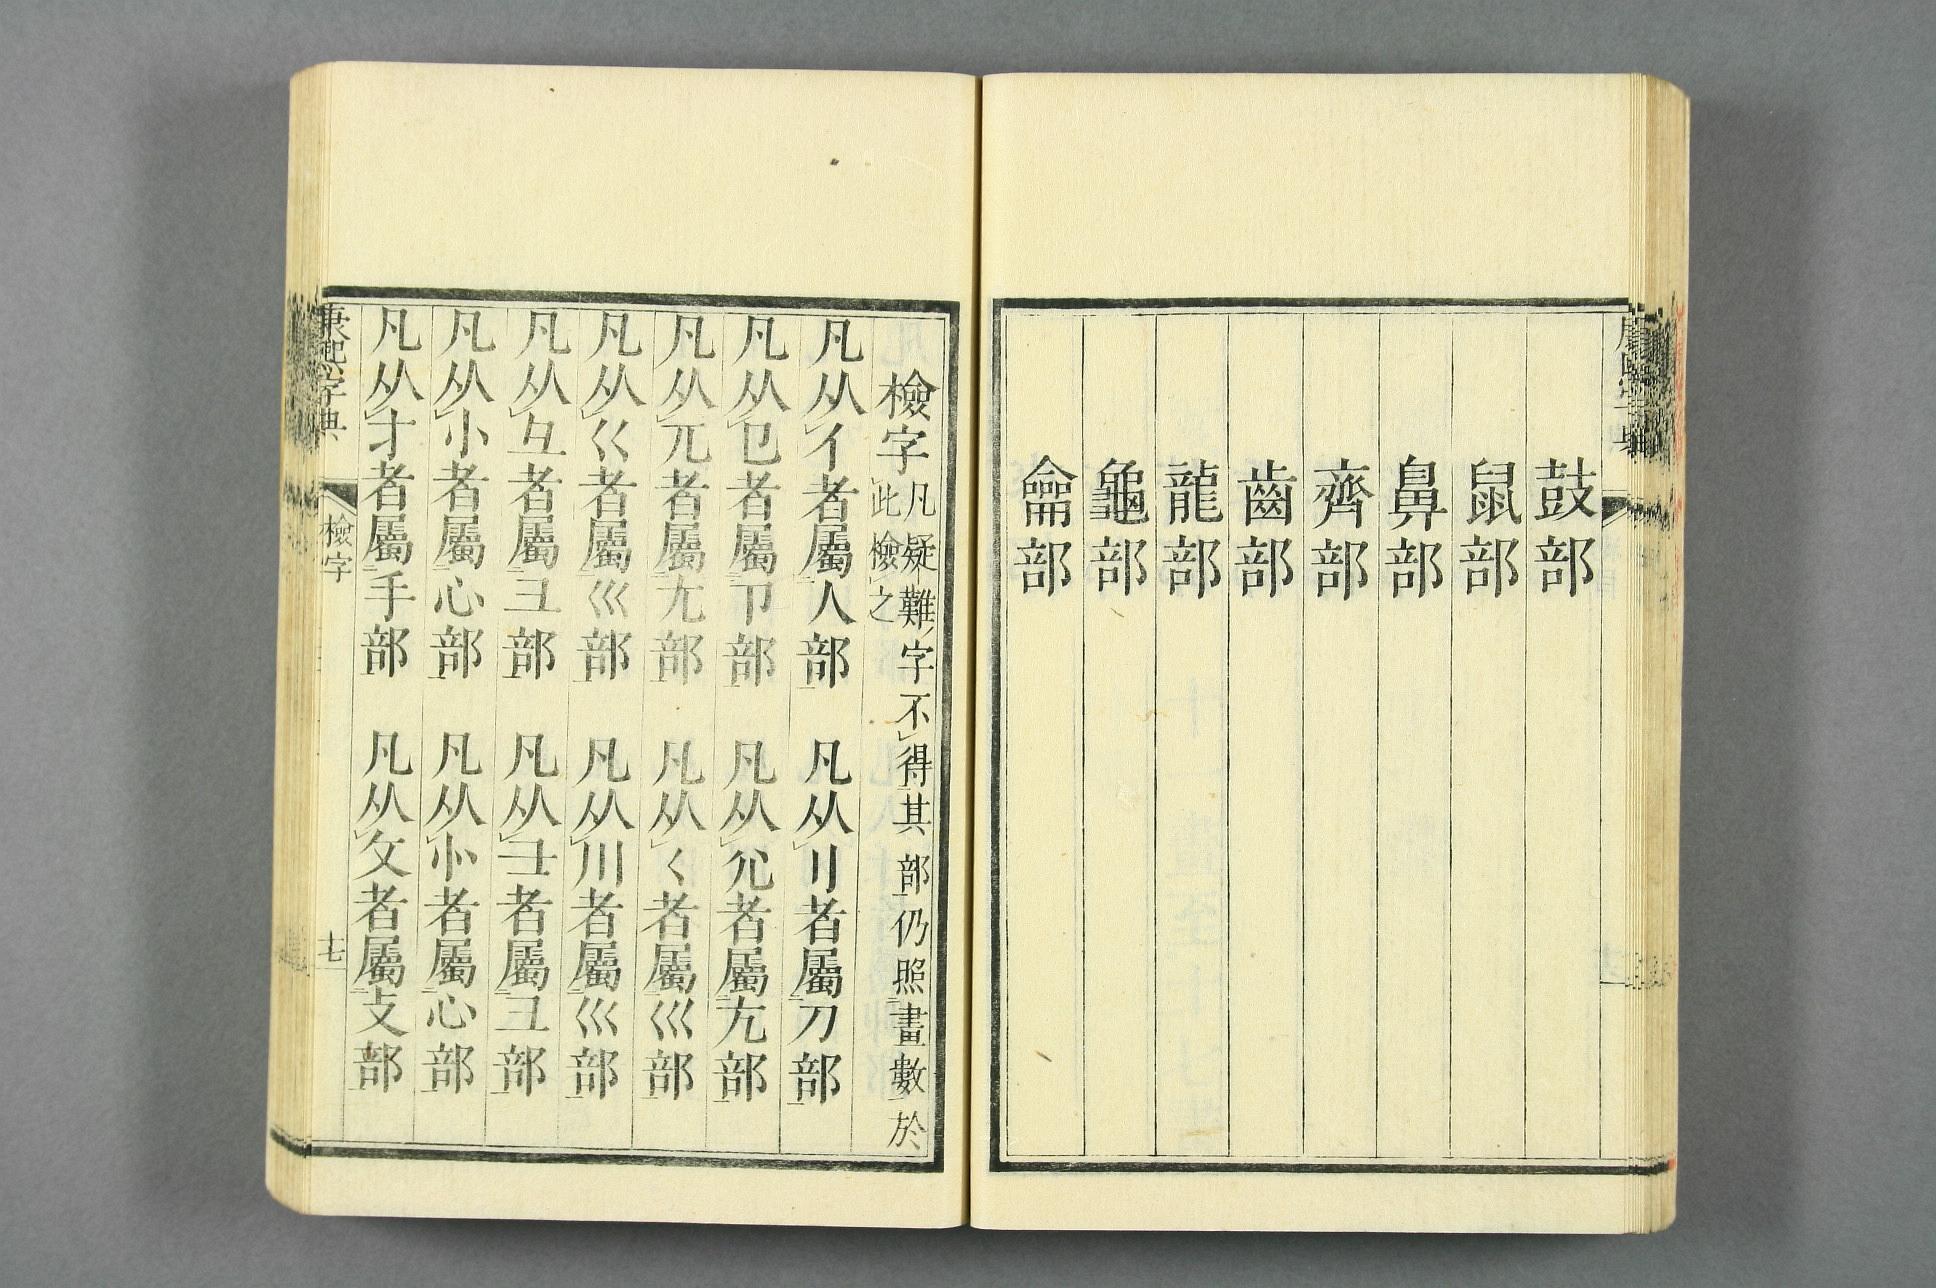 鼓部
鼠部
鼻部
齊部
齒部
龍部
龜部
龠部
檢字 凡疑難字不得其部仍照畫數於
此檢之
凡从亻者屬人部 凡从刂者屬刀部
凡从㔾者屬卩部 凡从尣者屬尢部
凡从兀者屬尢部 凡从巜者屬巛部
凡从巜者屬巛部 凡从川者屬巛部
凡从彑者屬彐部 凡从彐者屬彐部
凡从忄者屬心部 凡从㣺者屬心部
凡从扌者屬手部 凡从攵者屬攴部
康熙字典
檢字
十七